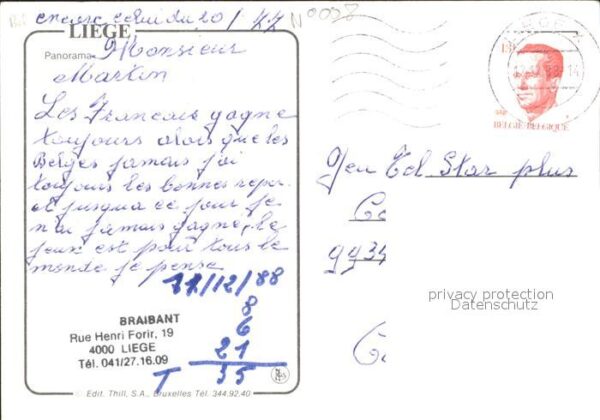 encore celui du 20/
N°008
LIEGE
Panorama
Monsieur
Martin
Les Francais gagne
toujours alors que les
Belges jamais j'ai
toujours les bonnes repon.
et jusqua ce jour je
n'ai jamais gagne, le
jeux est pour tous le
monde je pense
11/12/88
8
6
21
T 35
BRAIBANT
Rue Henri Forir, 19
4000 LIEGE
Tél. 041/27.16.09
© Edit. Thill, S.A., Bruxelles Tél. 344.92.40
BELGIË-BELGIQUE
Jeu Tel Star plus
privacy protection
Datenschutz